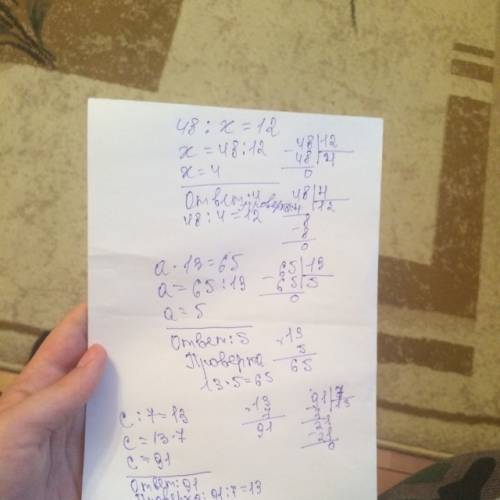 48 : x = 12
x = 48 : 12
x = 4
48 | 12
48 | 4
0
Ответ: 4 проверка
48 : 4 = 12
48 | 4
4 | 12
8
8
0
a · 13 = 65
a = 65 : 13
a = 5
65 | 13
65 | 5
0
Ответ: 5
Проверка
13 · 5 = 65
13
5
65
c : 7 = 13
c = 13 · 7
c = 91
13
7
91
91 | 7
7 | 13
21
21
0
Ответ: 91
Проверка: 91 : 7 = 13